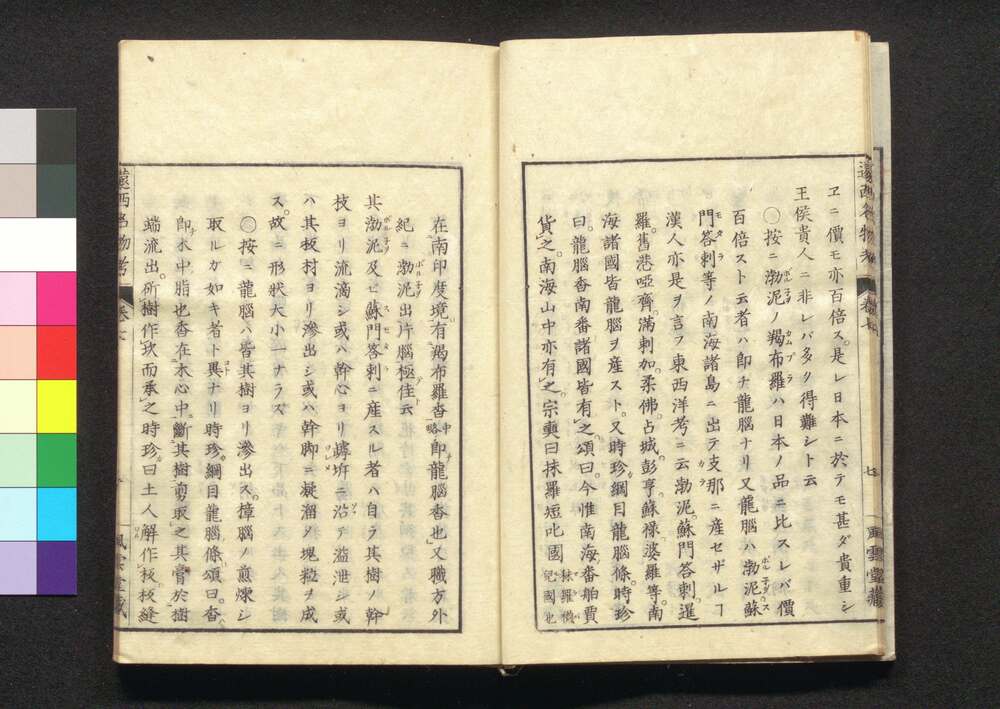 ヱニ價モ亦百倍ス。是レ日本ニ於テモ甚ダ貴重シ
王侯貴人ニ非レバ多ク得難シト云
◯按ニ渤泥ノ羯布羅ハ日本ノ品ニ比スレバ價
百倍スト云者ハ即チ龍腦ナリ又龍腦ハ渤泥蘇
門答剌等ノ南海諸島ニ出テ支那ニ產セザルヿ
漢人亦是ヲ言フ東西洋考ニ云渤泥蘇門答剌暹
羅。舊港啞齊。滿剌加。柔佛。占城。彭亨。蘇祿婆羅等。南
海諸國皆龍腦ヲ產スト。又時珍綱目龍腦條。時珍
曰。龍腦香南番諸國皆有之。頌曰。今惟南海番舶賈
貨之。南海山中亦有之。宗奭曰抹羅短叱國 抹羅微兒國也
遠西名物考 卷七
七 風雲堂藏
在南印度境有羯布羅香 中略 即龍腦香也又職方外
紀ニ渤泥出片腦極佳云
其渤泥及ヒ蘇門答剌ニ產スル者ハ自ラ其樹ノ幹
枝ヨリ流滴シ或ハ幹心ヨリ罅坼ニ沿テ溢泄シ或
ハ其板材ヨリ滲出シ或ハ幹脚ニ凝溜メ塊粒ヲ成
ス。故ニ形狀大小一ナラズ
◯按ニ龍腦ハ皆其樹ヨリ滲出ス。樟腦ノ煎煉シ
取ルガ如キ者ト異ナリ時珍綱目龍腦條頌曰。香
即木中脂也香在木心中。斷其樹剪取之其膏於樹
端流出。斫樹作坎而承之時珍曰土人解作板板縫
遠西名物考 卷七
風雲堂藏